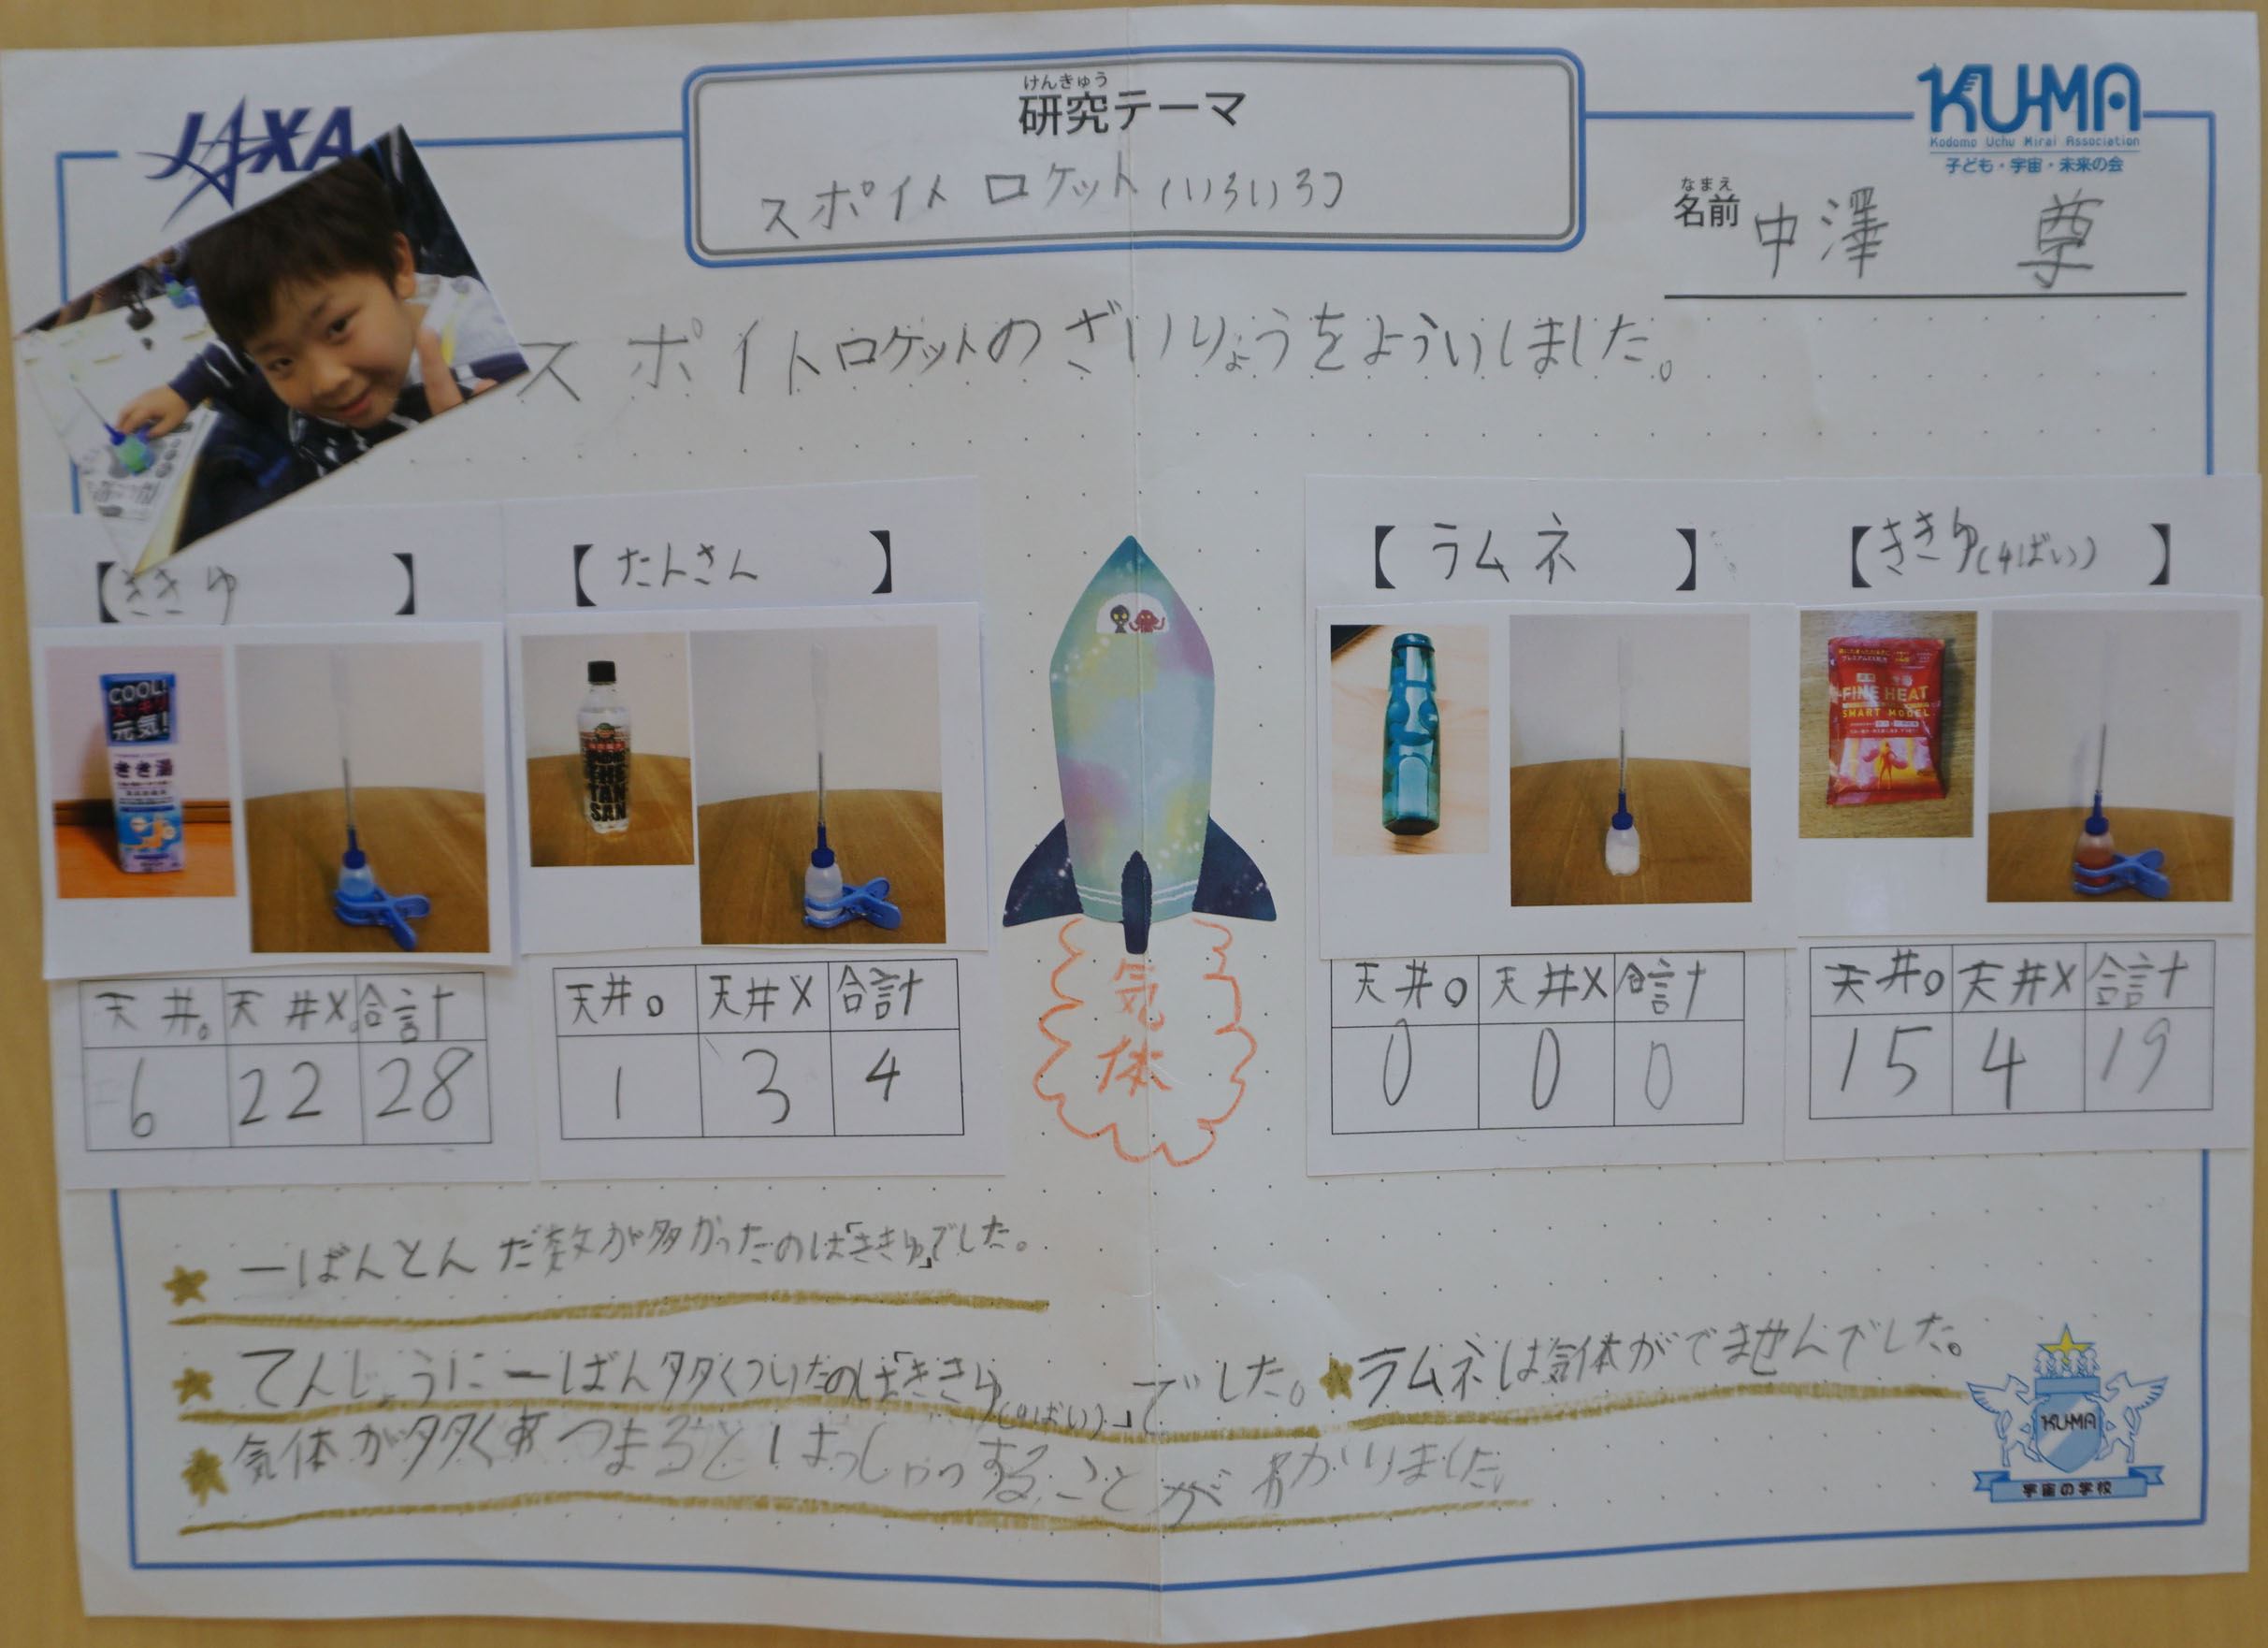 JAXA
けんきゅう
研究テーマ
スポイトロケット(いろいろ)
KUMA
Kodomo Uchu Mirai Association
子ども・宇宙・未来の会
なまえ
名前 中澤 尊
スポイトロケットのざいりょうをよういしました。
【ききゆ】
COOL!
スッキリ
元気!
きき湯
天井。 天井X。 合計
6 22 28
【たんさん】
THE
TAN
SAN
天井。 天井X 合計
1 3 4
気体
【ラムネ】
天井。 天井X 合計
0 0 0
【ききゆ(4ばい)】
FINE HEAT
SMART MODEL
天井。 天井X 合計
15 4 19
一ばんとんだ数が多かったのは「ききゆ」でした。
てんじょうに一ばん多くついたのは「ききゆ(4ばい)」でした。
ラムネは気体がでませんでした。
気体が多くあつまるとはっしゃっすることがわかりました
KUMA
宇宙の学校